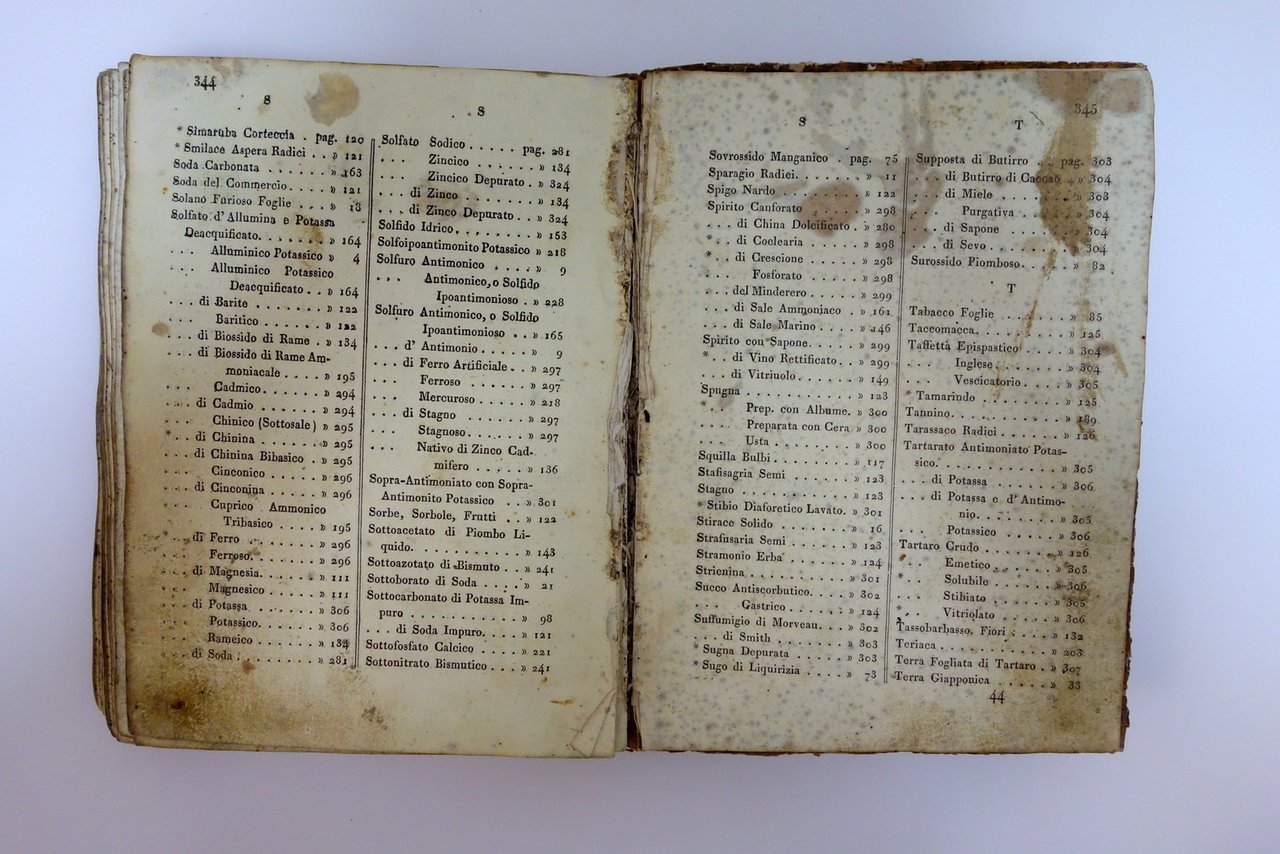 344
S
* Simaruba Corteccia . pag. 120
* Smilace Aspera Radici . . » 121
Soda Carbonata . . . . . . » 163
Soda del Commercio. . . . » 121
Solano Furioso Foglie . . . » 18
Solfato d' Allumina e Potassa
Deacquificato. . . . . . . » 164
. . . Alluminico Potassico » 4
. . . Alluminico Potassico
Deacquificato. . . » 164
. . . di Barite . . . . . . . » 122
. . . Baritico . . . . . . » 122
. . . di Biossido di Rame . » 134
. . . di Biossido di Rame Am-
moniacale . . . . » 195
. . . Cadmico. . . . . . » 294
. . . di Cadmio . . . . . . » 294
. . . Chinico (Sottosale) » 295
* . . di Chinina . . . . . . » 295
. . . di Chinina Bibasico . » 295
. . . Cinconico . . . . . » 296
. . . di Cinconina . . . . . » 296
. . . Cuprico Ammonico
Tribasico . . . . » 195
* . . di Ferro . . . . . . . » 296
. . . Ferroso. . . . . . . » 296
. . . di Magnesia. . . . . . » 111
. . . Magnesico . . . . . » 111
. . . di Potassa . . . . . . » 306
. . . Potassico. . . . . . » 306
. . . Rameico . . . . . . » 134
. . . di Soda . . . . . . . » 281
S
Solfato Sodico . . . . . pag. 281
. . . Zincico . . . . . . » 134
. . . Zincico Depurato . » 324
. . . di Zinco . . . . . . . » 134
. . . di Zinco Depurato . . » 324
Solfido Idrico. . . . . . . . » 153
Solfoipoantimonito Potassico » 218
Solfuro Antimonico . . . . » 9
. . . Antimonico, o Solfido
Ipoantimonioso . » 228
Solfuro Antimonico, o Solfido
Ipoantimonioso . . » 165
. . . d' Antimonio . . . . . » 9
. . . di Ferro Artificiale . . » 297
. . . Ferroso . . . . . . » 297
. . . Mercuroso . . . . . » 218
. . . di Stagno . . . . . . » 297
. . . Stagnoso. . . . . . » 297
. . . Nativo di Zinco Cad-
mifero . . . . . » 136
Sopra-Antimoniato con Sopra-
Antimonito Potassico . . » 301
Sorbe, Sorbole, Frutti . . » 122
Sottoacetato di Piombo Li-
quido. . . . . . . . . . » 143
Sottoazotato di Bismuto . . » 241
Sottoborato di Soda . . . . » 21
Sottocarbonato di Potassa Im-
puro . . . . . . . . . . » 98
. . . di Soda Impuro. . . . » 121
Sottofosfato Calcico . . . . » 221
Sottonitrato Bismutico . . . » 241
345
S
Sovrossido Manganico . pag. 75
Sparagio Radici. . . . . . . » 11
Spigo Nardo . . . . . . . . » 122
Spirito Canforato . . . . . » 298
. . . di China Dolcificato . » 280
* . . di Coclearia . . . . . » 298
* . . di Crescione . . . . . » 298
. . . Fosforato . . . . . » 298
. . . del Minderero . . . . » 299
. . . di Sale Ammoniaco . » 161
. . . di Sale Marino . . . . » 146
Spirito con Sapone. . . . . » 299
* . . di Vino Rettificato. . » 299
. . . di Vitriuolo . . . . . » 149
Spugna . . . . . . . . . . . » 123
* . . Prep. con Albume. » 300
. . . Preparata con Cera » 300
. . . Usta . . . . . . . . » 300
Squilla Bulbi . . . . . . . . » 117
Stafisagria Semi . . . . . . » 123
Stagno . . . . . . . . . . . » 123
* Stibio Diaforetico Lavato. » 301
Stirace Solido . . . . . . . » 16
Strafusaria Semi . . . . . . » 123
Stramonio Erba . . . . . . » 124
Stricnina . . . . . . . . . . » 301
Succo Antiscorbutico. . . . » 302
. . . Gastrico . . . . . . » 124
Suffumigio di Morveau. . . » 302
. . . di Smith . . . . . . » 303
* Sugna Depurata . . . . . » 303
* Sugo di Liquirizia . . . . » 73
T
Supposta di Butirro . . pag. 303
. . . di Butirro di Caccao . » 304
. . . di Miele . . . . . . . » 303
. . . Purgativa . . . . . » 304
. . . di Sapone . . . . . . » 304
. . . di Sevo . . . . . . . » 304
Surossido Piomboso. . . . . » 82
T
Tabacco Foglie . . . . . . . » 85
Taccomacca. . . . . . . . . » 125
Taffettà Epispastico . . . . » 304
. . . Inglese . . . . . . . » 304
. . . Vescicatorio . . . . » 305
* Tamarindo . . . . . . . . » 125
Tannino. . . . . . . . . . . » 189
Tarassaco Radici . . . . . . » 126
Tartarato Antimoniato Potas-
sico. . . . . . . . . . . » 305
. . . di Potassa . . . . . . » 306
. . . di Potassa e d' Antimo-
nio. . . . . . . . » 305
. . . Potassico . . . . . » 306
Tartaro Crudo . . . . . . . » 126
* . . Emetico . . . . . . » 305
* . . Solubile . . . . . . » 306
. . . Stibiato . . . . . . » 305
* . . Vitriolato . . . . . » 306
Tassobarbasso. Fiori . . . . » 132
Teriaca . . . . . . . . . . . » 203
Terra Fogliata di Tartaro . » 307
Terra Giapponica . . . . . » 33
44